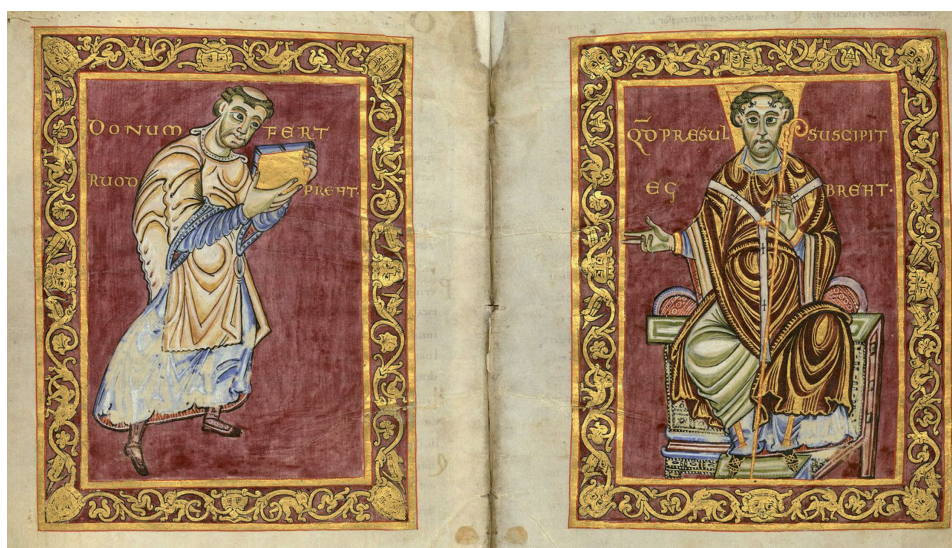 DONUM FERT
RUOD PREHT·
QD̄ PRESUL SUSCIPIT
EG BREHT·